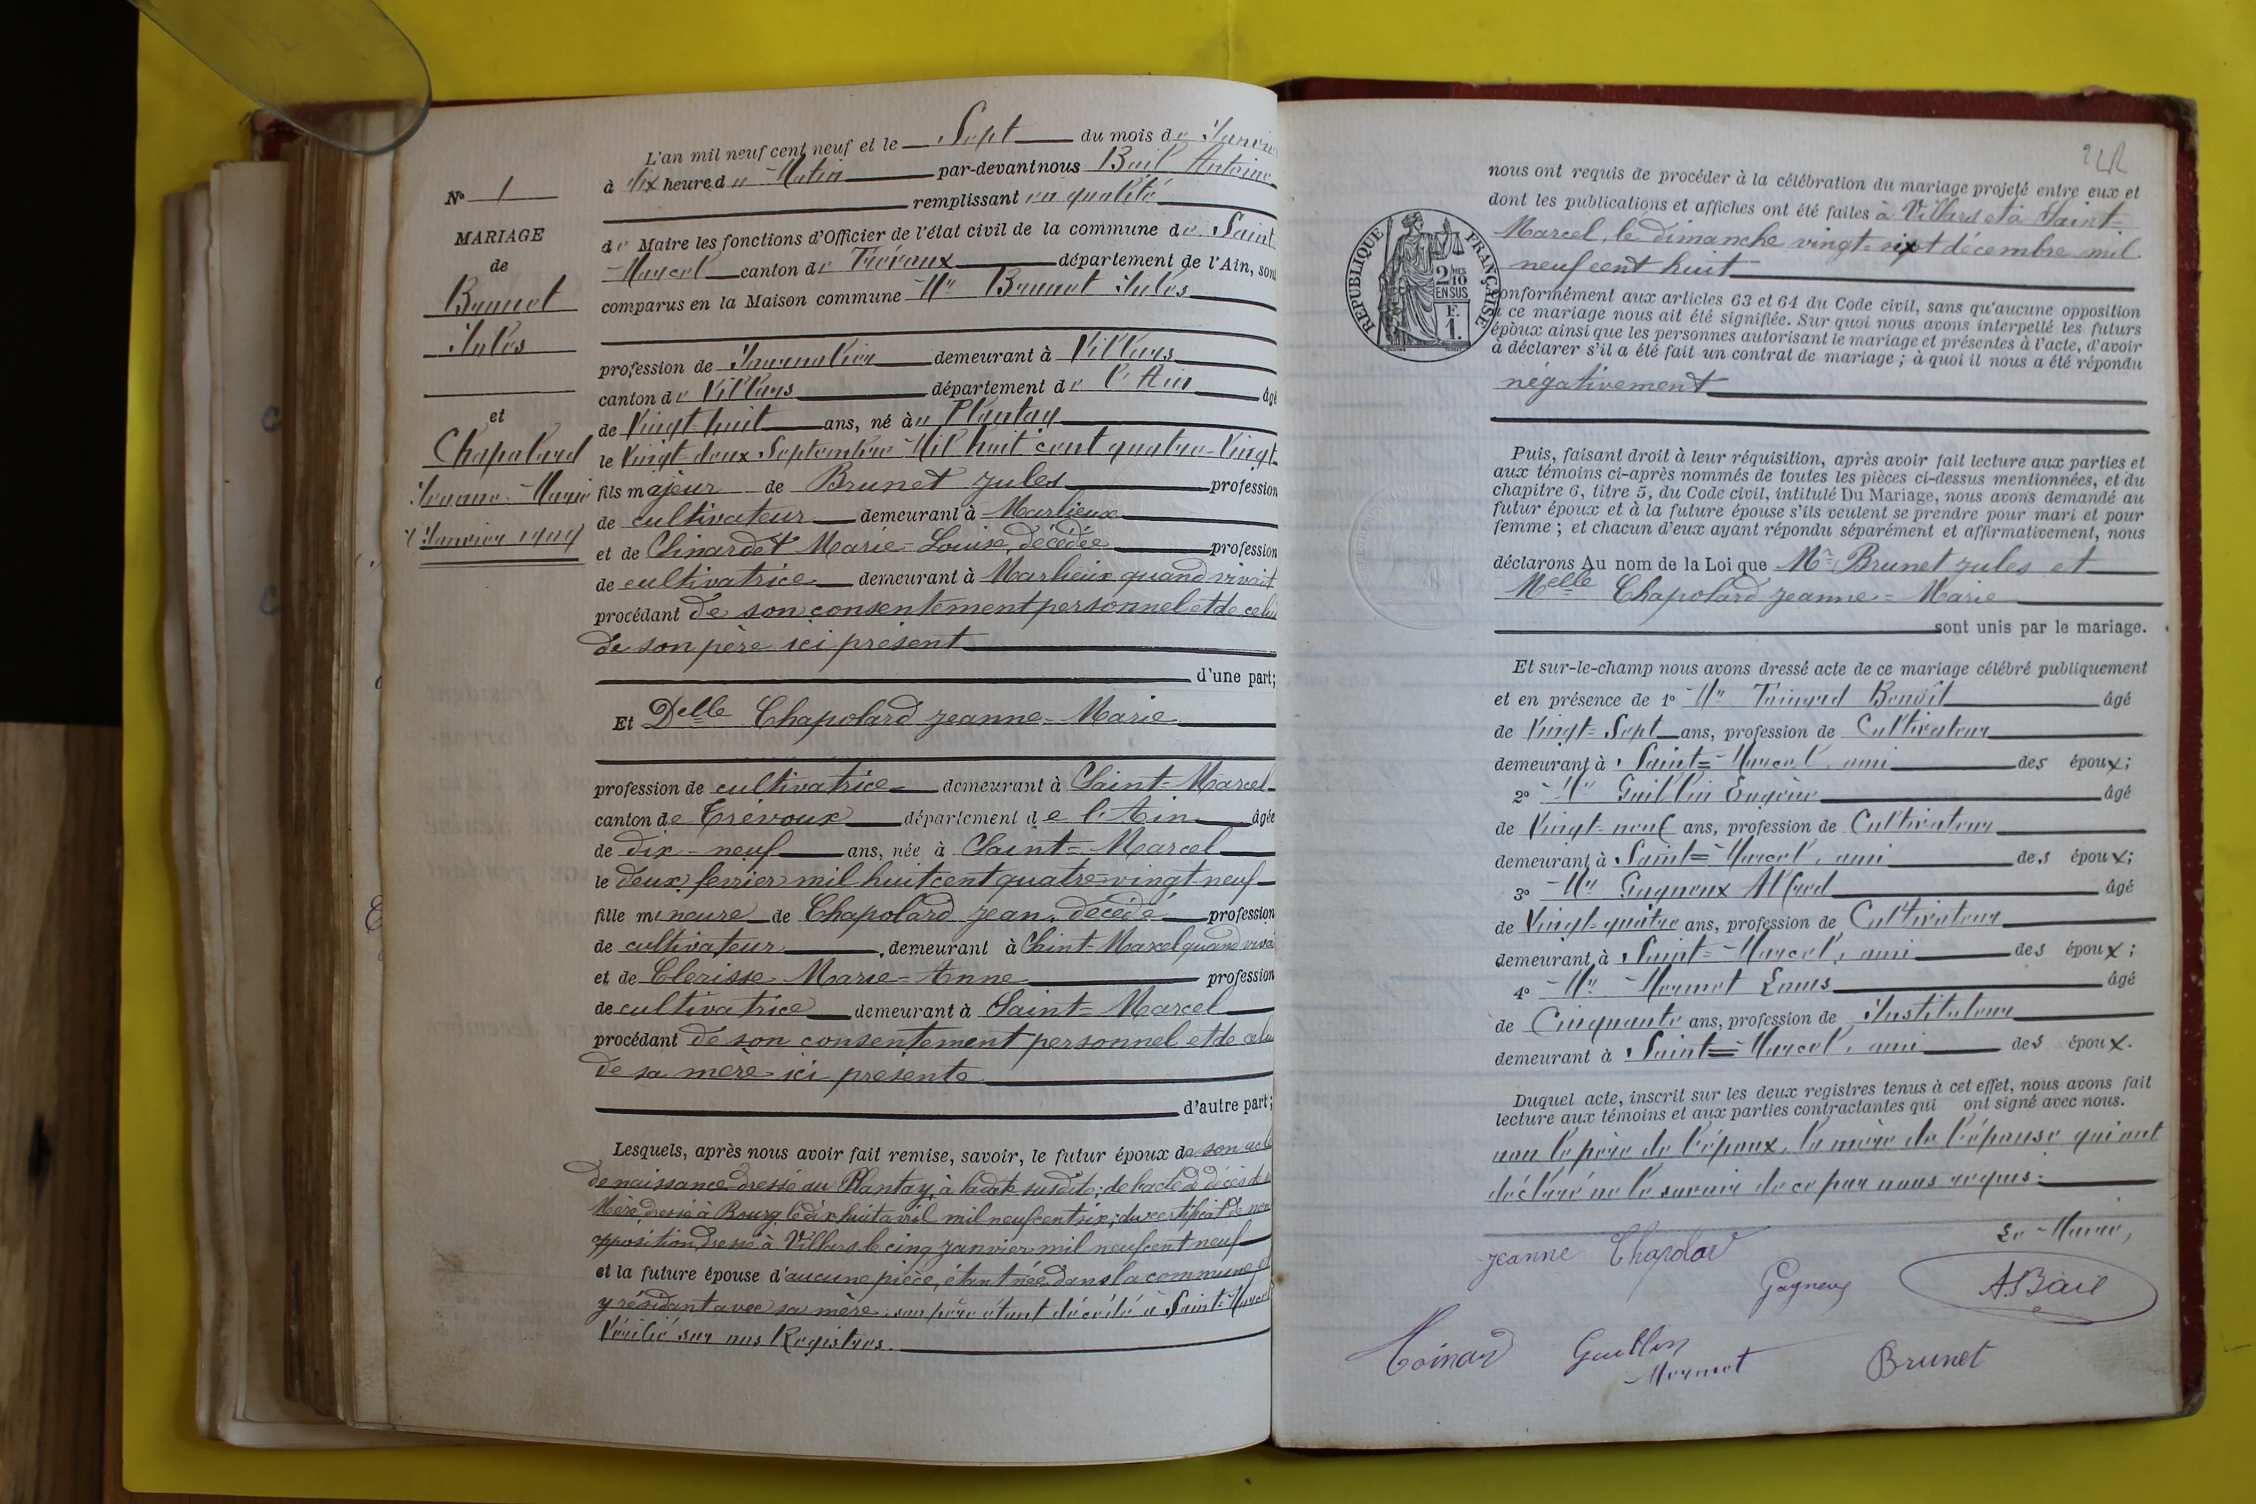 L'an mil neuf cent neuf et le Sept du mois de Janvier
à dix heure du Matin par-devant nous Bail Antoine
remplissant en qualité
de Maire les fonctions d'Officier de l'état civil de la commune de Saint
-Marcel canton de Trévoux département de l'Ain, sont
comparus en la Maison commune Mr Brunet Jules
profession de Journalier demeurant à Villars
canton de Villars département de l'Ain âgé
de Vingt-huit ans, né au Plantay
le Vingt-deux Septembre Mil huit cent quatre-Vingt
fils majeur de Brunet Jules profession
de cultivateur demeurant à Marlieux
et de Chinardet Marie-Louise, décédée profession
de cultivatrice demeurant à Marlieux quand vivait
procédant de son consentement personnel et de celui
de son père ici présent
d'une part;
Et Delle Chapolard Jeanne-Marie
profession de cultivatrice demeurant à Saint-Marcel
canton de Trévoux département de l'Ain âgée
de dix-neuf ans, née à Saint-Marcel
le deux février mil huit cent quatre-vingt neuf
fille mineure de Chapolard Jean, décédé profession
de cultivateur demeurant à Saint-Marcel quand vivait
et de Clerisse Marie-Anne profession
de cultivatrice demeurant à Saint-Marcel
procédant de son consentement personnel et de celui
de sa mère ici présente
d'autre part;
Lesquels, après nous avoir fait remise, savoir, le futur époux de son acte
de naissance dressé au Plantay, à la date susdite; de l'acte de décès de sa
Mère dressé à Bourg le dix huit avril mil neuf cent six; du certificat de non
opposition, dressé à Villars le cinq janvier mil neuf cent neuf
et la future épouse d'aucune pièce, étant née dans la commune et
y résidant avec sa mère, son père étant décédé à Saint-Marcel
Vérifié sur nos Registres.
No 1
MARIAGE
de
Brunet
Jules
et
Chapolard
Jeanne-Marie
7 Janvier 1909
nous ont requis de procéder à la célébration du mariage projeté entre eux et
dont les publications et affiches ont été faites à Villars et à Saint-
Marcel, le dimanche vingt-sept décembre mil
neuf cent huit
RÉPUBLIQUE FRANÇAISE
2/10
EN SUS
F.
1.
conformément aux articles 63 et 64 du Code civil, sans qu'aucune opposition
à ce mariage nous ait été signifiée. Sur quoi nous avons interpellé les futurs
époux ainsi que les personnes autorisant le mariage et présentes à l'acte, d'avoir
à déclarer s'il a été fait un contrat de mariage; à quoi il nous a été répondu
négativement
Puis, faisant droit à leur réquisition, après avoir fait lecture aux parties et
aux témoins ci-après nommés de toutes les pièces ci-dessus mentionnées, et du
chapitre 6, titre 5, du Code civil, intitulé Du Mariage, nous avons demandé au
futur époux et à la future épouse s'ils veulent se prendre pour mari et pour
femme; et chacun d'eux ayant répondu séparément et affirmativement, nous
déclarons Au nom de la Loi que Mr Brunet Jules et
Melle Chapolard Jeanne-Marie
sont unis par le mariage.
Et sur-le-champ nous avons dressé acte de ce mariage célébré publiquement
et en présence de 1o Mr Toinard Benoît âgé
de Vingt-Sept ans, profession de Cultivateur
demeurant à Saint-Marcel, ami des époux;
2o Mr Guillin Eugène âgé
de Vingt-neuf ans, profession de Cultivateur
demeurant à Saint-Marcel, ami des époux;
3o Mr Gagneux Alfred âgé
de Vingt-quatre ans, profession de Cultivateur
demeurant à Saint-Marcel, ami des époux;
4o Mr Mermet Louis âgé
de Cinquante ans, profession de Instituteur
demeurant à Saint-Marcel, ami des époux.
Duquel acte, inscrit sur les deux registres tenus à cet effet, nous avons fait
lecture aux témoins et aux parties contractantes qui ont signé avec nous.
non le père de l'époux, la mère de l'épouse qui ont
déclaré ne le savoir de ce par nous requis.
Le Maire,
Jeanne
Gagneux
A. Bail
Toinard
Guillin
Mermet
Brunet